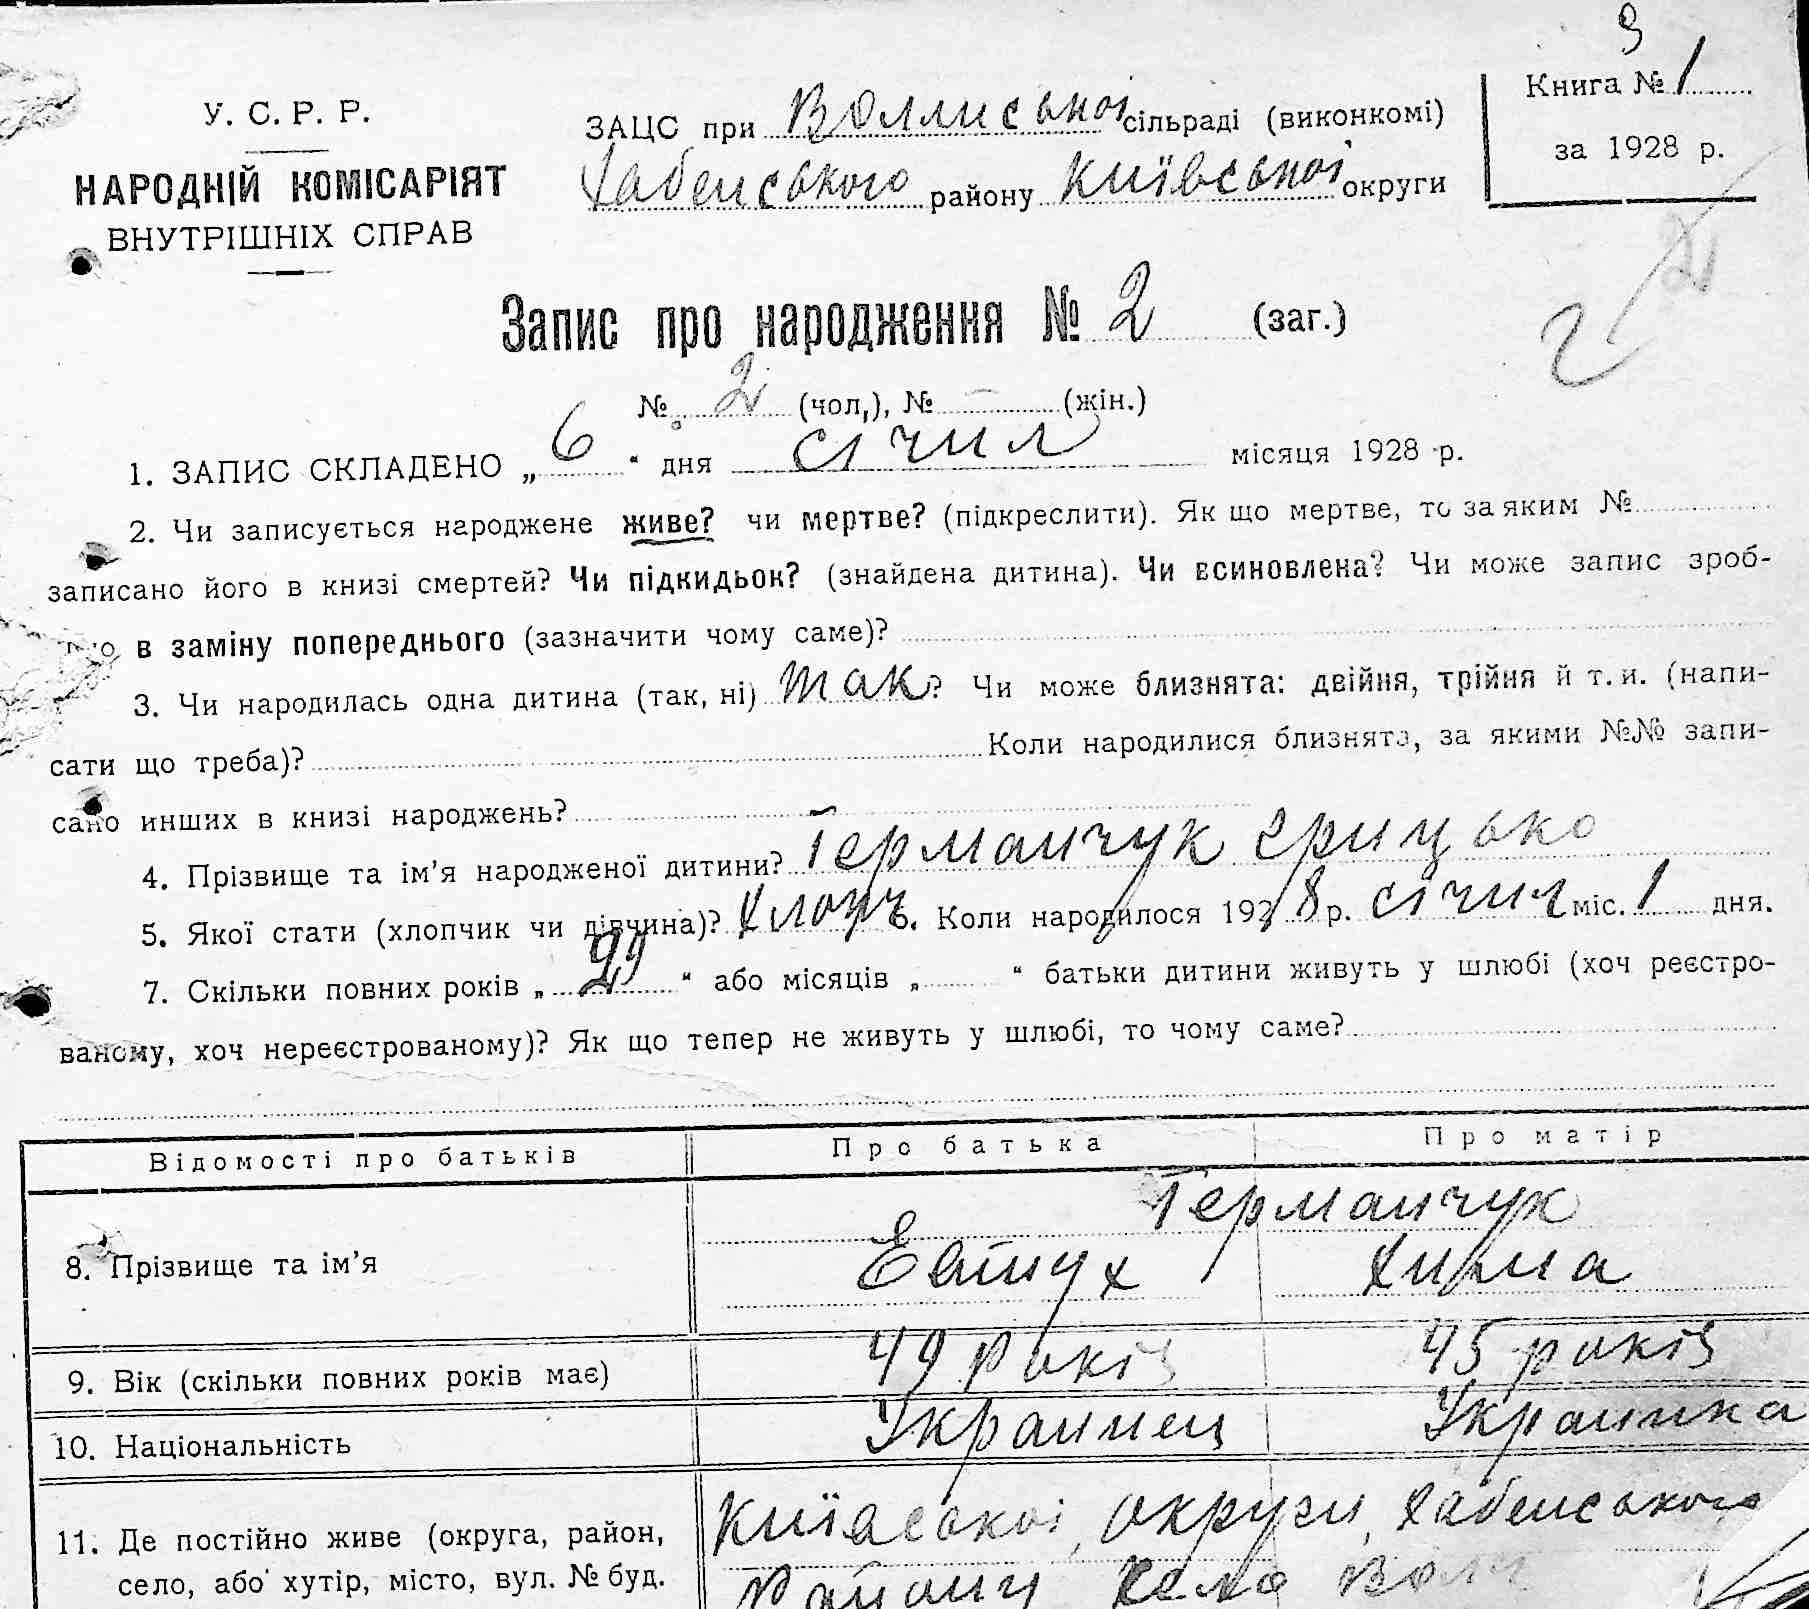 9
У. С. Р. Р.
НАРОДНІЙ КОМІСАРІЯТ
ВНУТРІШНІХ СПРАВ
ЗАЦС при сільраді (виконкомі)
Хабенського району Київської округи
Книга № 1
за 1928 р.
2
Запис про народження № 2 (заг.)
№ 2 (чол,), № – (жін.)
1. ЗАПИС СКЛАДЕНО „ 6 “ дня січня місяця 1928 р.
2. Чи записується народжене живе? чи мертве? (підкреслити). Як що мертве, то за яким №
записано його в книзі смертей? Чи підкидьок? (знайдена дитина). Чи всиновлена? Чи може запис зроб-
в заміну попереднього (зазначити чому саме)?
3. Чи народилась одна дитина (так, ні) так? Чи може близнята: двійня, трійня й т. и. (напи-
сати що треба)? Коли народилися близнята, за якими №№ запи-
сано инших в книзі народжень?
4. Прізвище та ім’я народженої дитини? Германчук Грицько
5. Якої стати (хлопчик чи дівчина)? хлопч 6. Коли народилося 1928 р. січня міс. 1 дня.
7. Скільки повних років „ 29 “ або місяців „ “ батьки дитини живуть у шлюбі (хоч реєстро-
ваному, хоч нереєстрованому)? Як що тепер не живуть у шлюбі, то чому саме?
Відомості про батьків Про батька Про матір
Германчук
8. Прізвище та ім’я Евтух Химa
9. Вік (скільки повних років має) 49 років 45 років
10. Національність Украинец Украинка
11. Де постійно живе (округа, район, Київської округи, Хабенського
село, або хутір, місто, вул. № буд. Району села